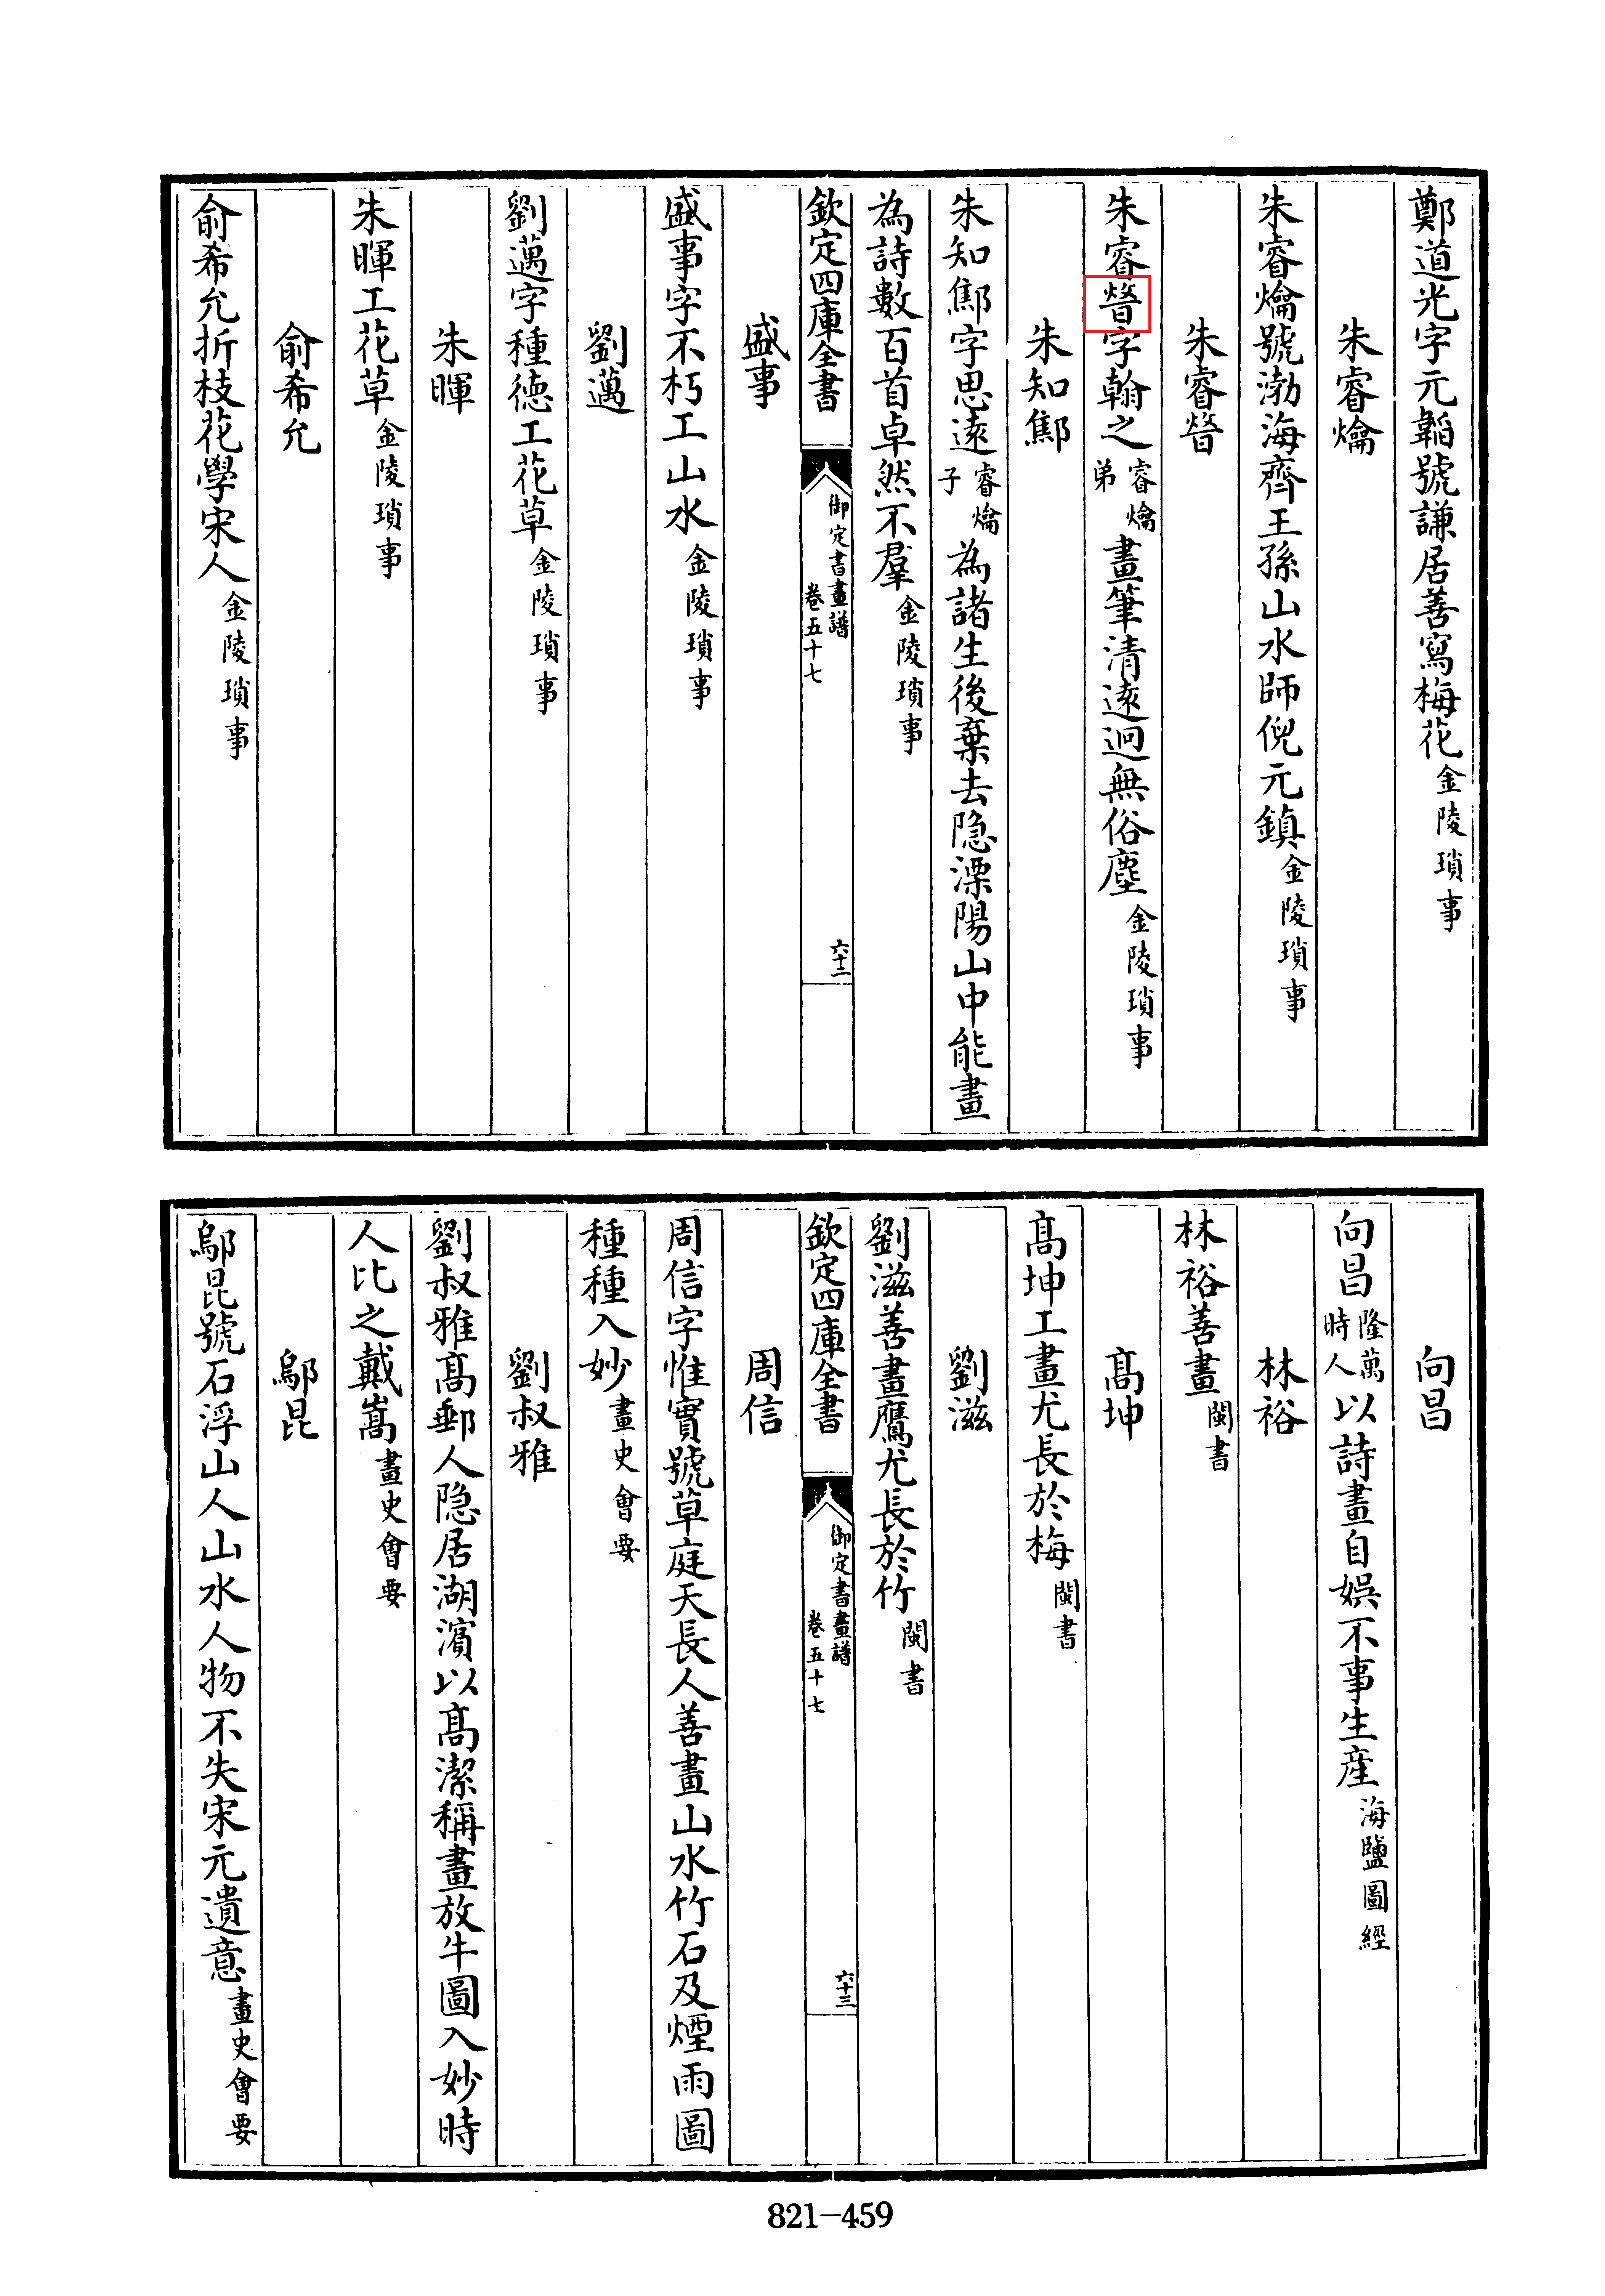 鄭道光字元韜號謙居善寫梅花金陵瑣事
朱睿爚
朱睿爚號渤海齊王孫山水師倪元鎮金陵瑣事
朱睿朁
朱睿朁字翰之睿爚弟畫筆清遠迥無俗塵金陵瑣事
朱知
朱知字思遠睿爚子為諸生後棄去隐溧陽山中能畫
為詩數百首卓然不羣金陵瑣事
欽定四庫全書 御定書畫譜 卷五十七 六十二
盛事
盛事字不朽工山水金陵瑣事
劉邁
劉邁字種德工花草金陵瑣事
朱暉
朱暉工花草金陵瑣事
俞希允
俞希允折枝花學宋人金陵瑣事
向昌
向昌隆萬時人以詩畫自娯不事生産海鹽圖經
林裕
林裕善畫閩書
髙坤
髙坤工畫尤長於梅閩書
劉滋
劉滋善畫鷹尤長於竹閩書
欽定四庫全書 御定書畫譜 卷五十七 六十三
周信
周信字惟實號草庭天長人善畫山水竹石及煙雨圖
種種入妙畫史會要
劉叔雅
劉叔雅髙郵人隐居湖濵以髙潔稱畫放牛圖入妙時
人比之戴嵩畫史會要
鄔昆
鄔昆號石浮山人山水人物不失宋元遺意畫史會要
821-459